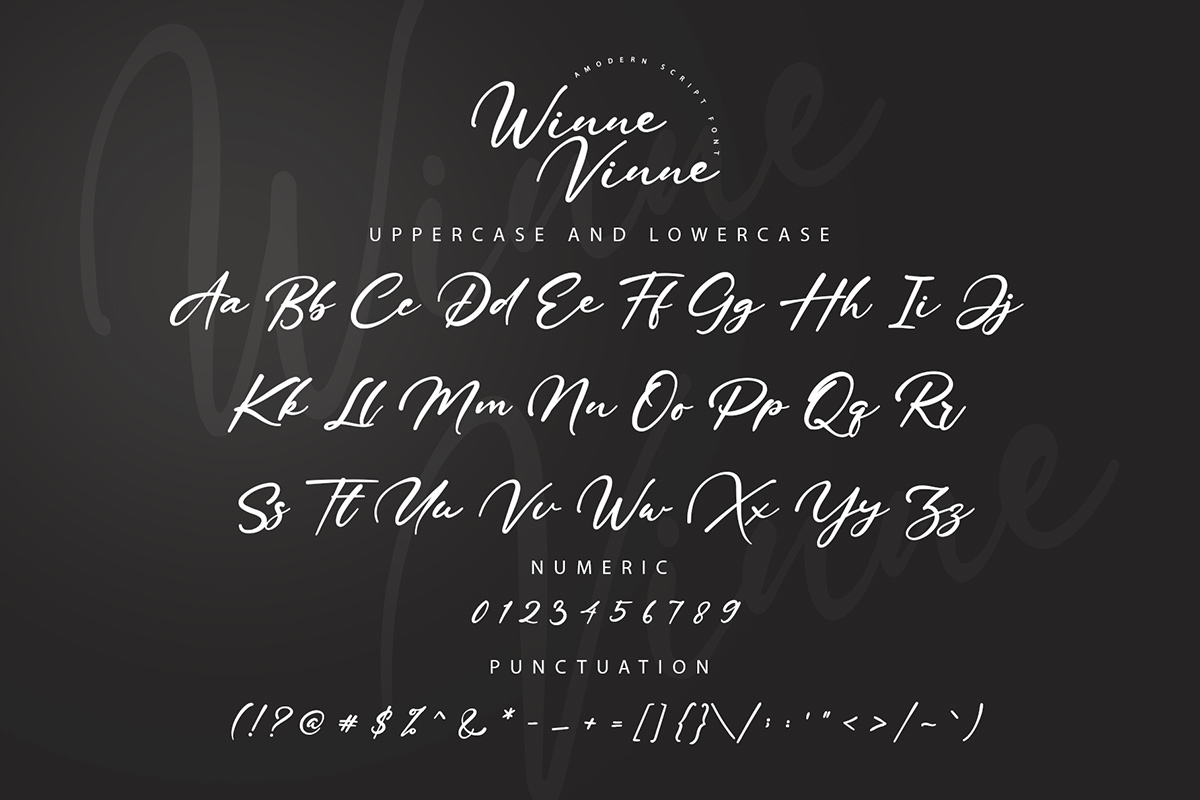 AMODERN SCRIPT FONT
Winne
Vinne
UPPERCASE AND LOWERCASE
Aa Bb Cc Dd Ee Ff Gg Hh Ii Jj
Kk Ll Mm Nn Oo Pp Qq Rr
Ss Tt Uu Vv Ww Xx Yy Zz
NUMERIC
0 1 2 3 4 5 6 7 8 9
PUNCTUATION
( ! ? @ # $ % ^ & * - _ + = [ ] { } \ / ; : ' " < > / ~ ` )
Winne
Vinne